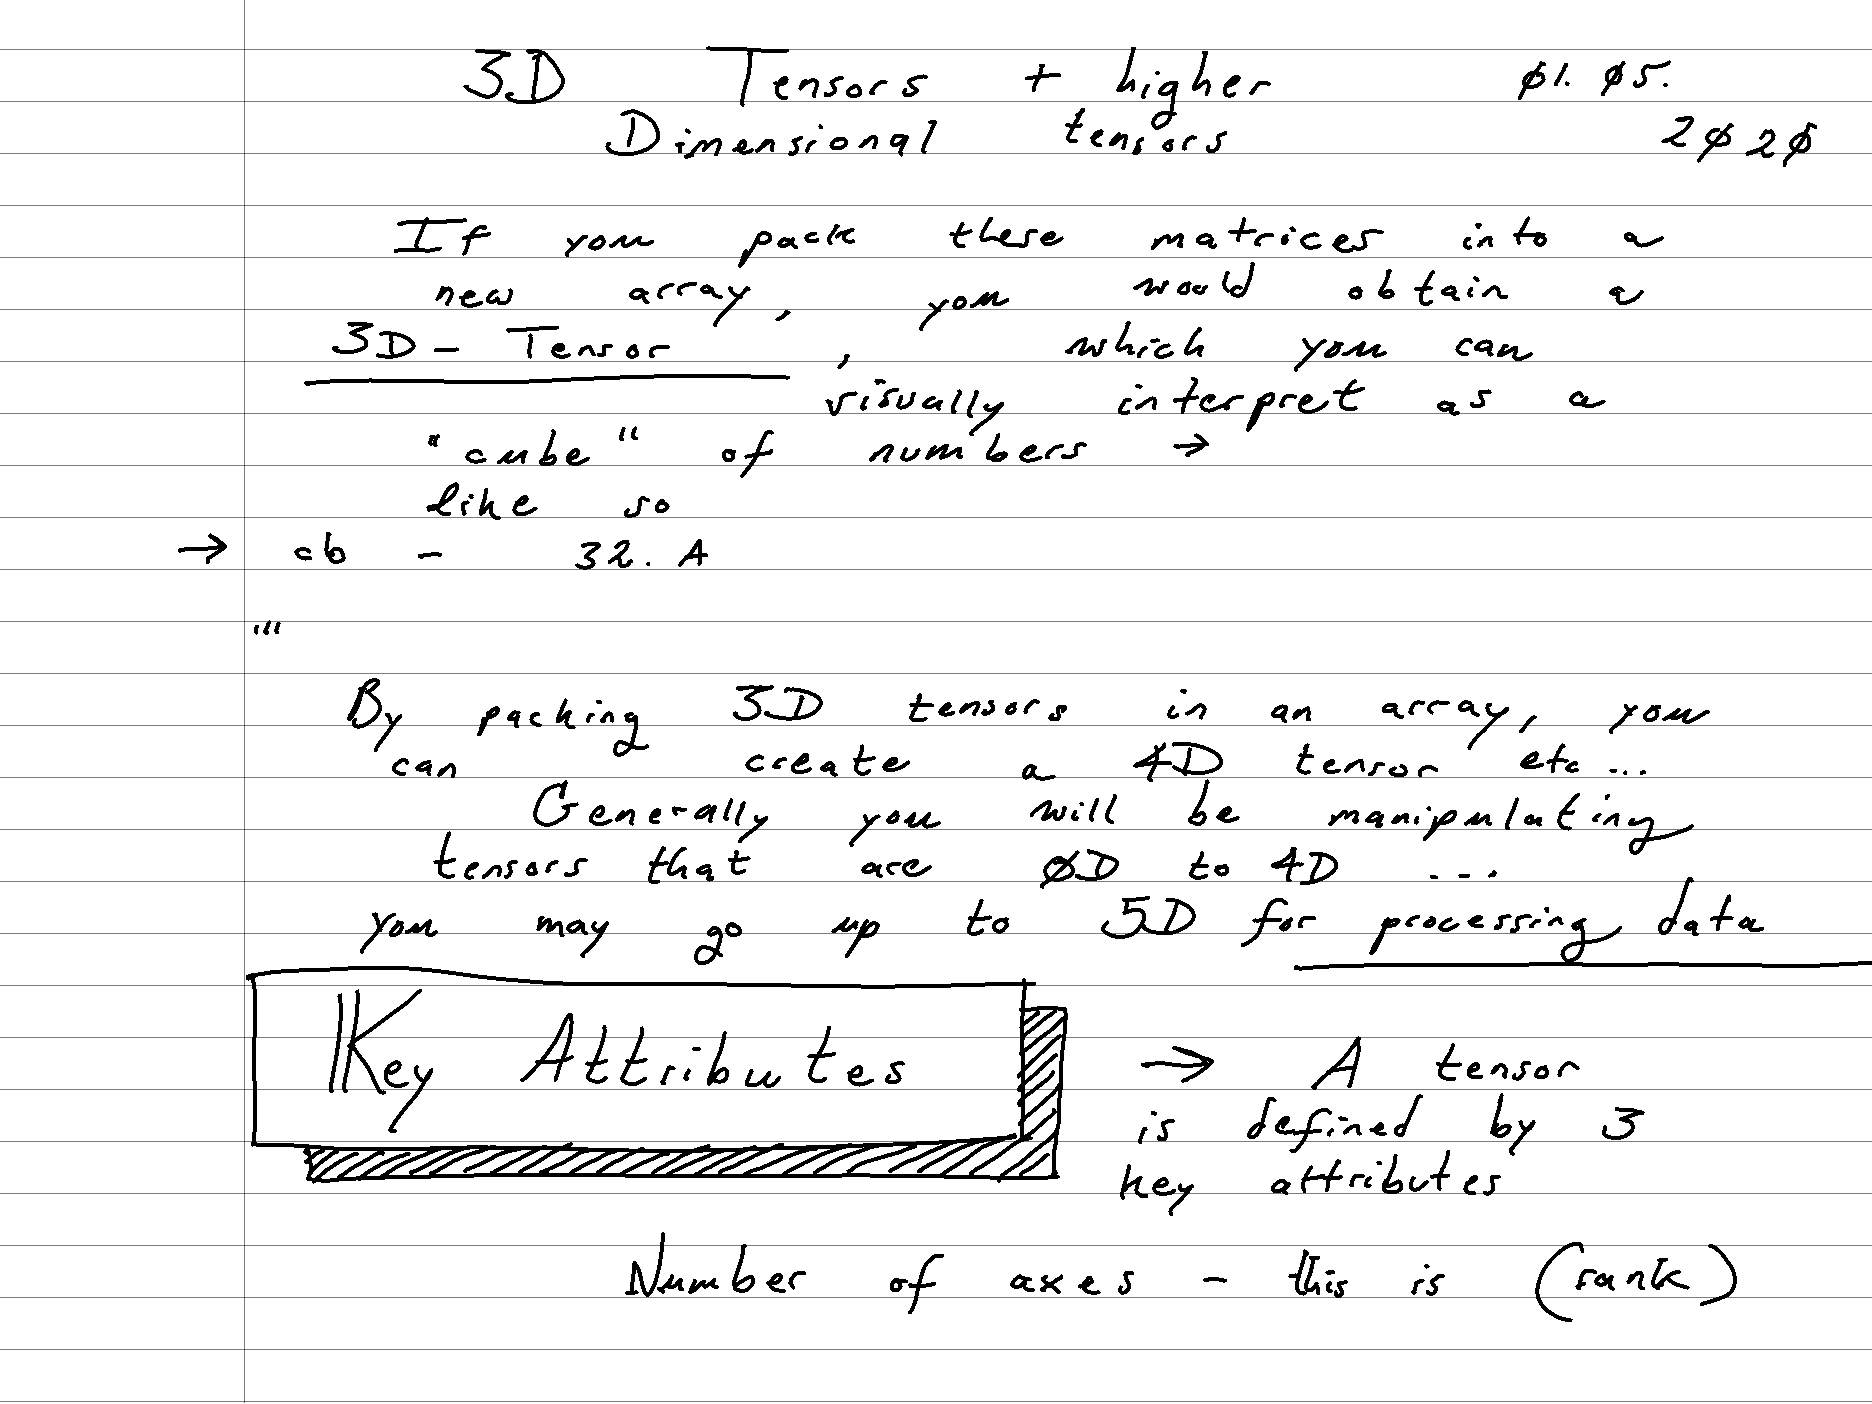 3D Tensors + higher
Dimensional tensors
01. 05.
2020
If you pack these matrices into a
new array, you would obtain a
3D - Tensor, which you can
visually interpret as a
"cube" of numbers →
like so
→ cb - 32. A
"'
By packing 3D tensors in an array, you
can create a 4D tensor etc...
Generally you will be manipulating
tensors that are 0D to 4D ...
you may go up to 5D for processing data
Key Attributes
→ A tensor
is defined by 3
key attributes
Number of axes - this is (rank)